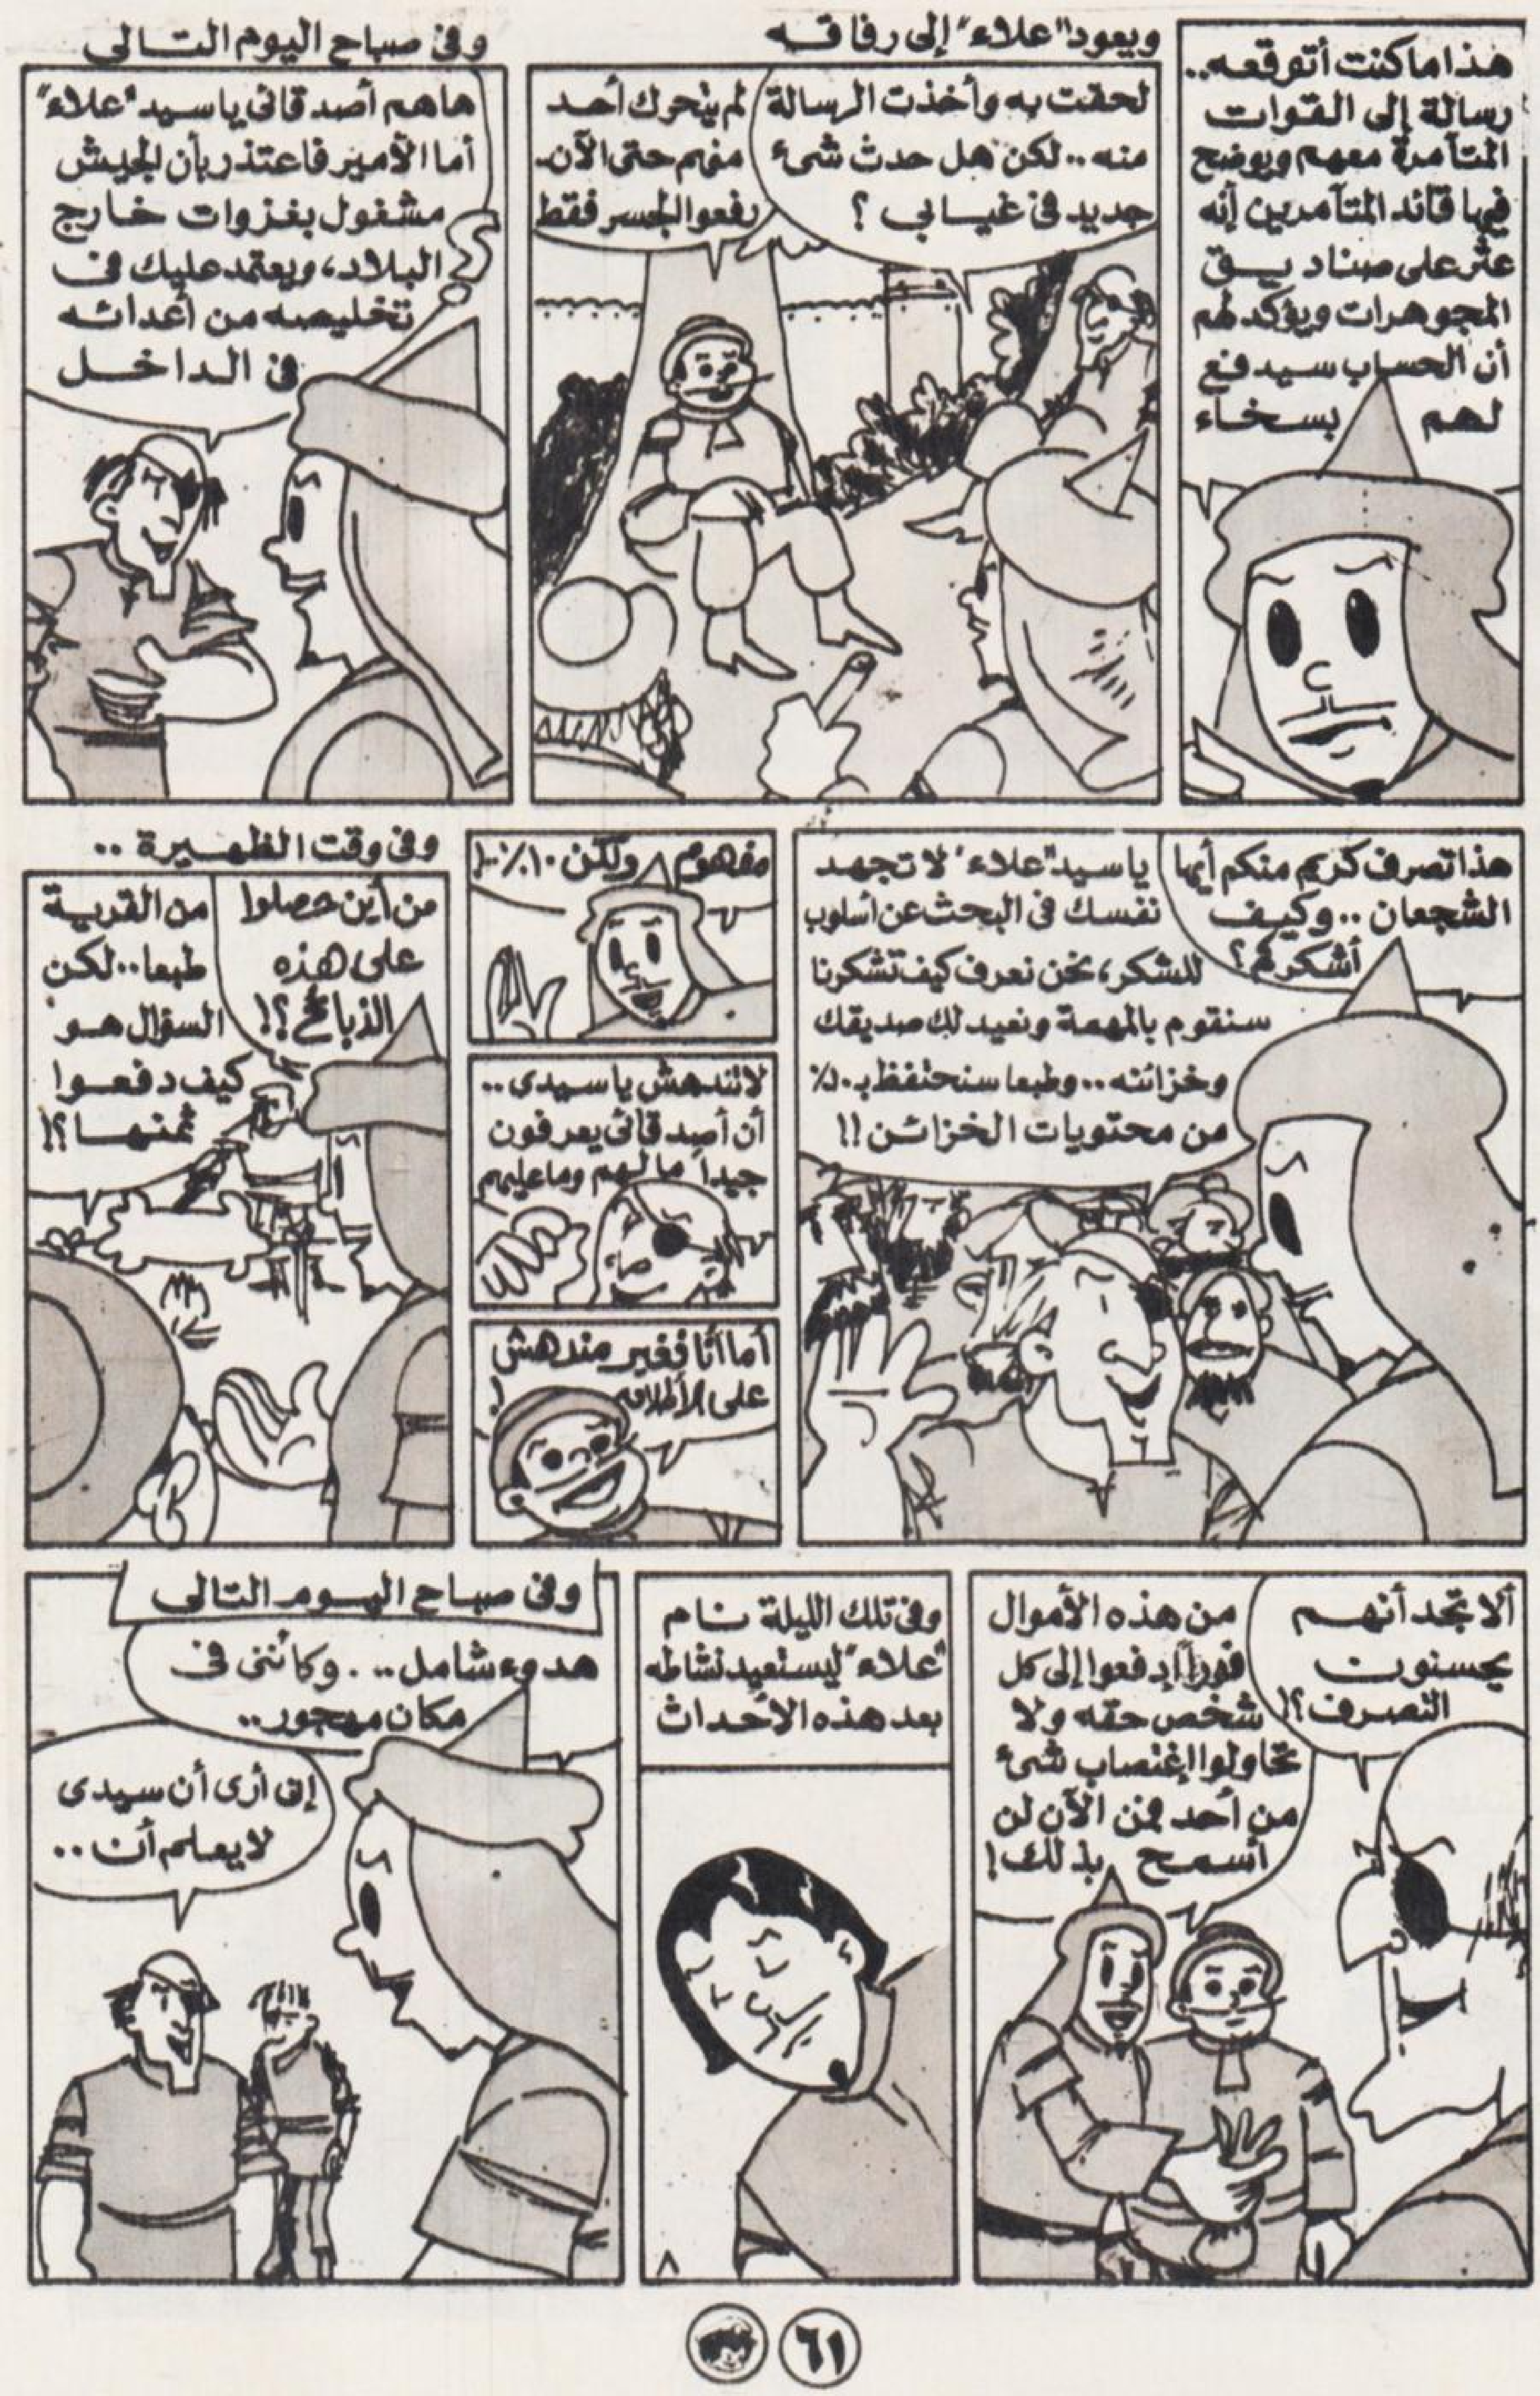 هذا ما كنت أتوقعه..
رسالة إلى القوات
المتآمرة معهم ويوضح
فيها قائد المتآمرين إنه
عثر على صناديق
المجوهرات ويؤكد لهم
أن الحساب سيدفع
لهم بسخاء
ويعود "علاء" إلى رفاقه
لحقت به وأخذت الرسالة
منه.. لكن هل حدث شئ
جديد فى غيابى ؟
لم يتحرك أحد
منهم حتى الآن.
رفعوا الجسر فقط
وفى صباح اليوم التالى
هاهم أصدقائى ياسيد "علاء"
أما الأمير فاعتذر بأن الجيش
مشغول بغزوات خارج
البلاد، ويعتمد عليك فى
تخليصه من أعدائه
فى الداخل
هذا تصرف كريم منكم أيها
الشجعان .. وكيف
أشكركم ؟
ياسيد "علاء" لا تجهد
نفسك فى البحث عن أسلوب
للشكر، نحن نعرف كيف تشكرنا
سنقوم بالمهمة ونعيد لك صديقك
وخزائنه.. وطبعا سنحتفظ بـ ١٠٪
من محتويات الخزائن !!
مفهوم ولكن ١٠٪..!
لا تندهش ياسيدى ..
أن أصدقائى يعرفون
جيداً مالهم وماعليهم
أما أنا فغير مندهش
على الأطلاق !
وفى وقت الظهيرة ..
من أين حصلوا
على هذه
الذبائح ؟!
من القرية
طبعا.. لكن
السؤال هو
كيف دفعوا
ثمنها ؟!
ألا تجد أنهم
يحسنون
التصرف ؟!
من هذه الأموال
فوراً إدفعوا إلى كل
شخص حقه ولا
تحاولوا إغتصاب شئ
من أحد فمن الآن لن
أسمح بذلك !
وفى تلك الليلة نام
"علاء" ليستعيد نشاطه
بعد هذه الأحداث
٨
وفى صباح اليوم التالى
هدوء شامل .. وكأننى فى
مكان مهجور..
إنى أرى أن سيدى
لا يعلم أن ..
٦١